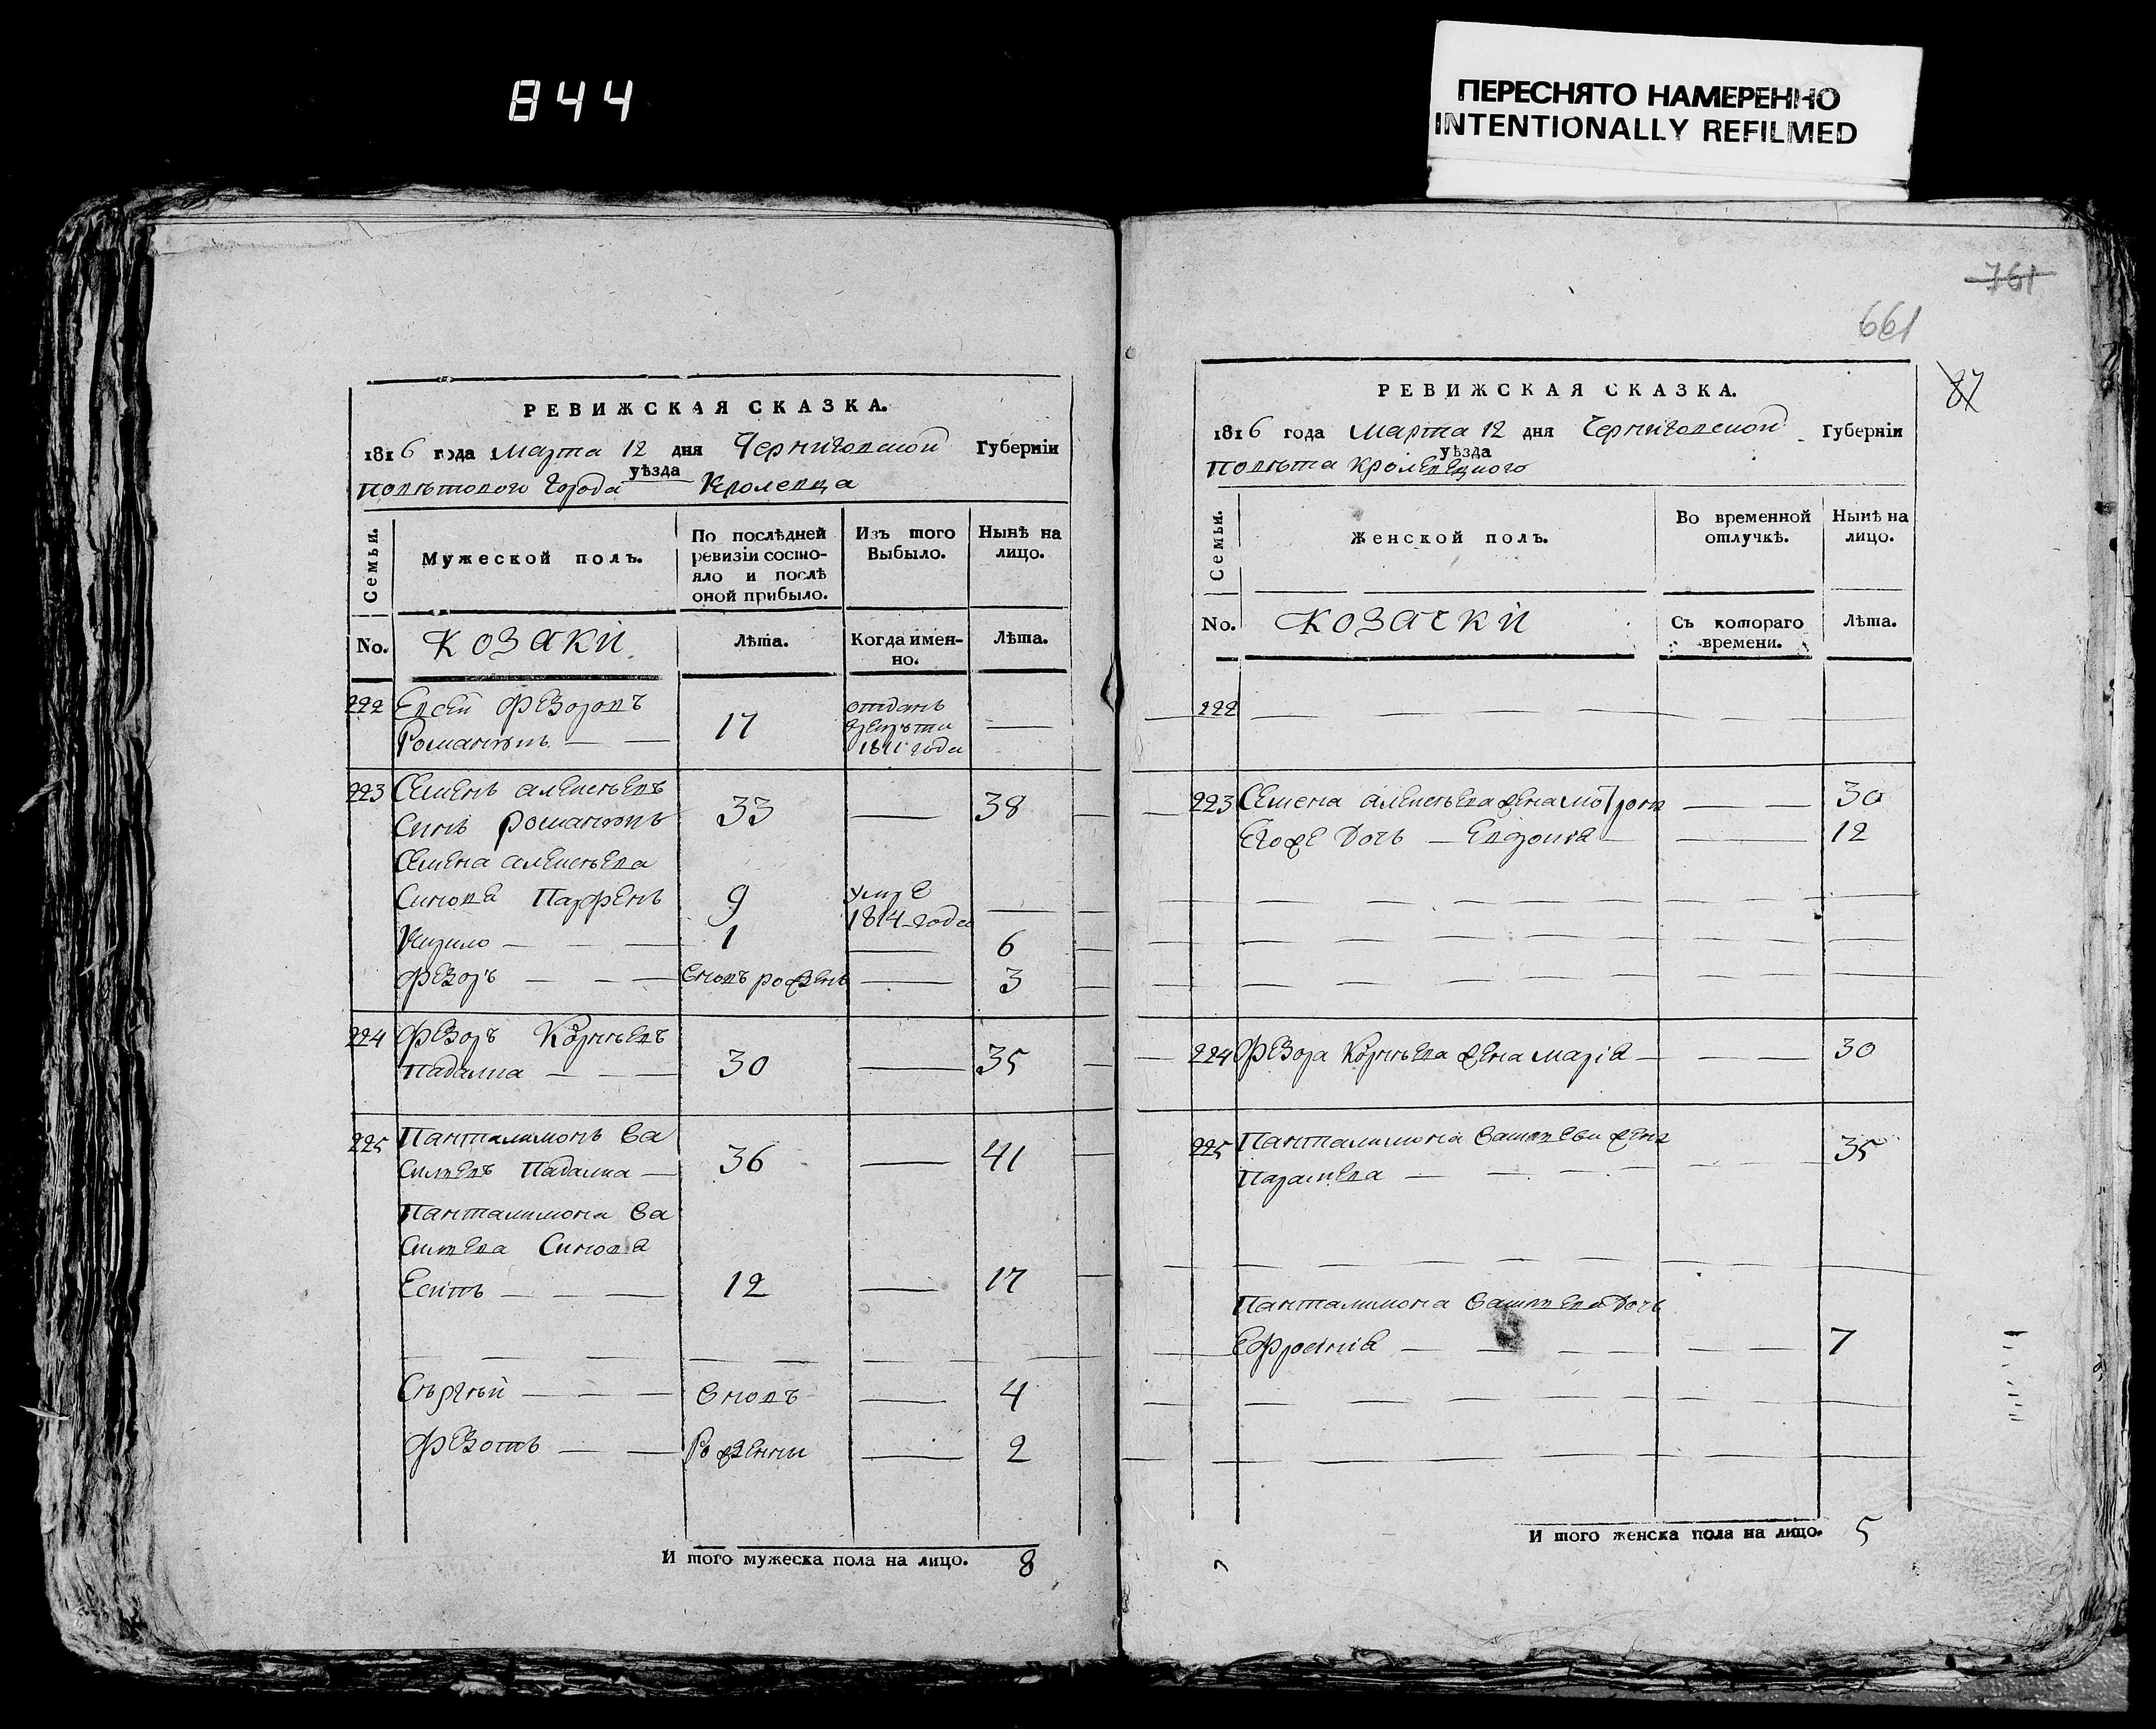 844
ПЕРЕСНЯТО НАМЕРЕННО
INTENTIONALLY REFILMED
761
661
87
РЕВИЖСКАЯ СКАЗКА.
1816 года Марта 12 дня Черниговской Губернїи
уѣзда
Повѣтового Города Кролевца
Семьи.
Мужеской полъ.
По послѣдней
ревизїи состо-
яло и послѣ
оной прибыло.
Изъ того
Выбыло.
Нынѣ на
лицо.
No.
козаки
Лѣта.
Когда имен-
но.
Лѣта.
222 Евсей Федоровъ
Романюкъ
17
отданъ
1811 года
223 Семенъ Алексѣевъ
Синъ Романюкъ
33
38
Семена Алексѣева
Синове Парфенъ
9
умре
1814 года
Кирило
1
6
Федоръ
вновъ рожденъ
3
224 Федоръ Корнѣевъ
Падалка
30
35
225 Панталимонъ Ва
силиевъ Падалка
36
41
Панталимона Ва
силиева Синове
Есипъ
12
17
Сергѣй
Вновъ
4
Федотъ
Рожденни
2
И того мужеска пола на лицо.
8
РЕВИЖСКАЯ СКАЗКА.
1816 года Марта 12 дня Черниговской Губернїи
уѣзда
Повѣта Кролевецкого
Семьи.
Женской полъ.
Во временной
отлучкѣ.
Нынѣ на
лицо.
No.
козачки
Съ котораго
времени.
Лѣта.
222
223 Семена Алексѣева жена Мотрона
30
Егоже Дочь Евдокия
12
224 Федора Корнѣева жена Марїя
30
225 Панталимона Василиева жена
Параскева
35
Панталимона Василиева Дочь
Ефросинїя
7
И того женска пола на лицо.
5